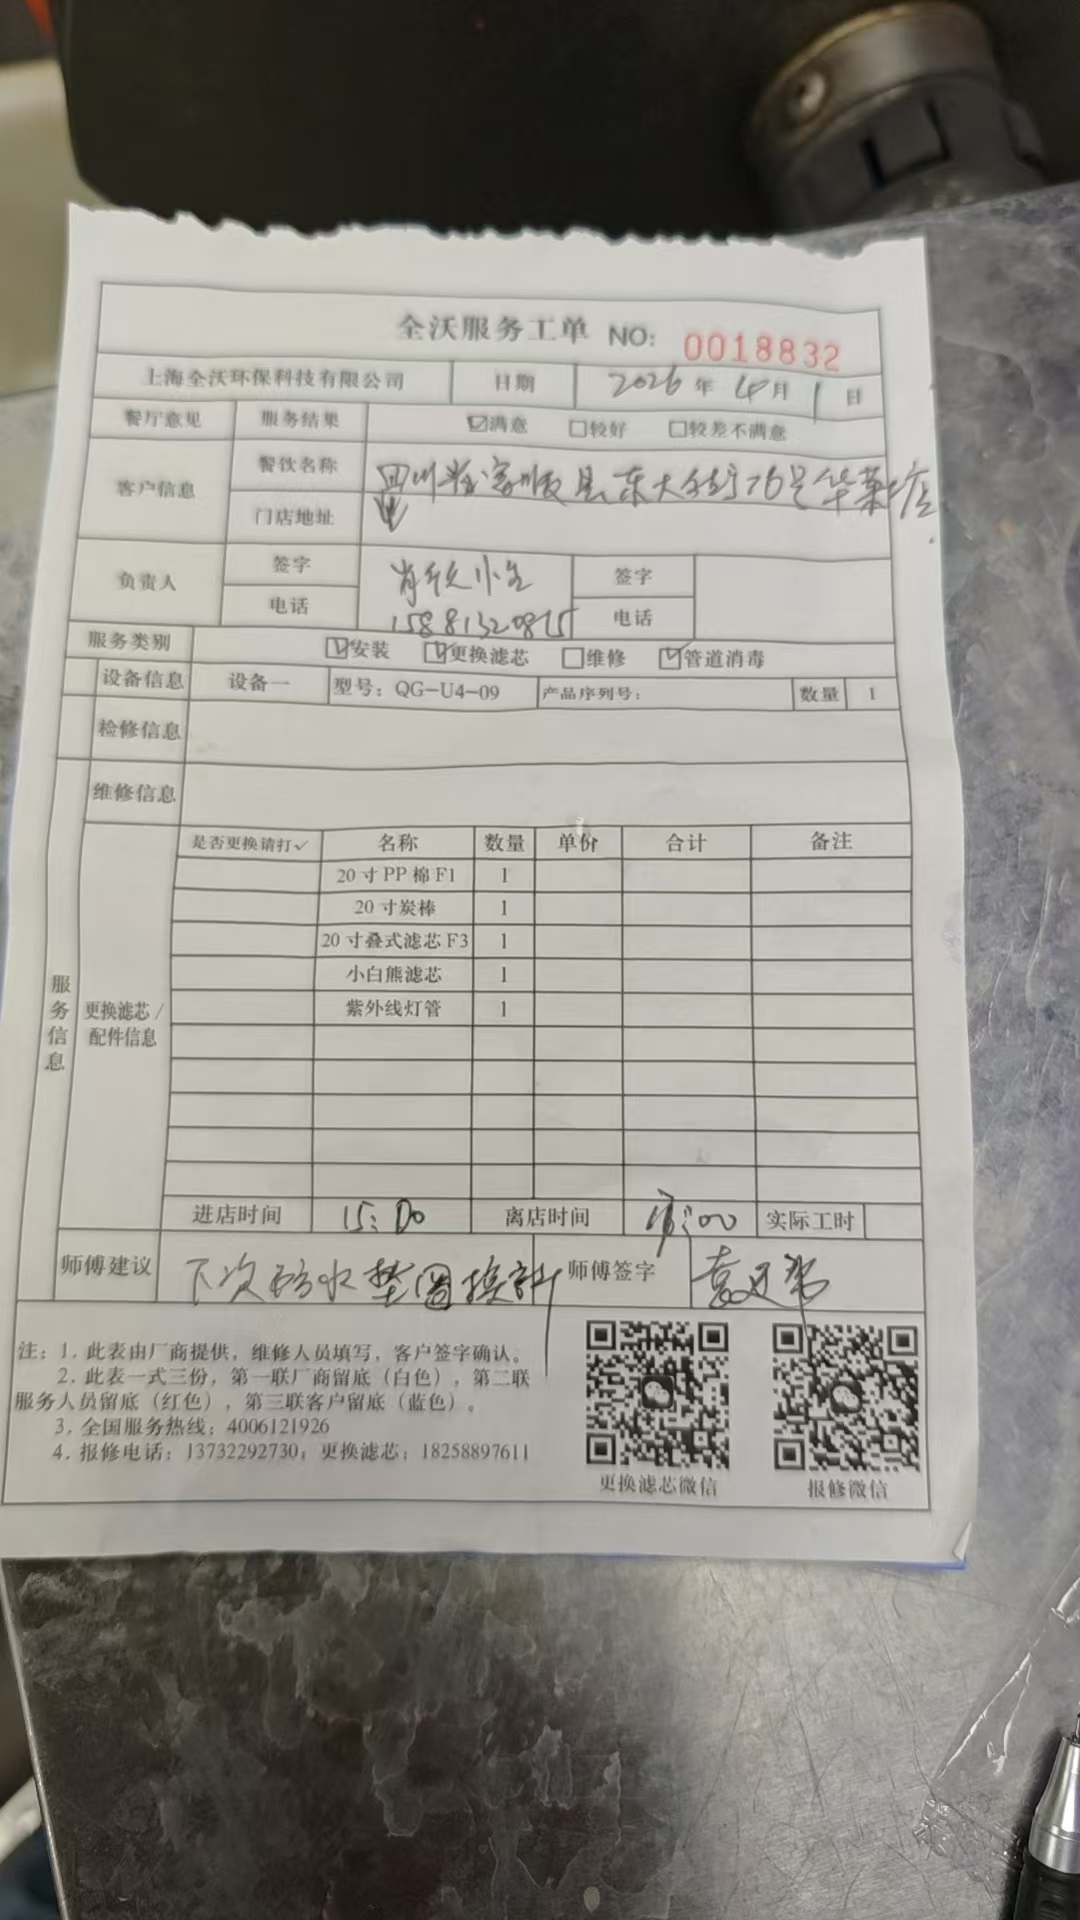 全沃服务工单 NO: 0018832
上海全沃环保科技有限公司 日期 2026年4月1日
餐厅意见 服务结果 ☑满意 □较好 □较差不满意
客户信息 餐饮名称 四川 县东大街76号华莱士店
门店地址
负责人 签字 签字
电话 15881320875 电话
服务类别 ☑安装 ☑更换滤芯 □维修 ☑管道消毒
设备信息 设备一 型号：QG-U4-09 产品序列号： 数量 1
检修信息
维修信息
服务信息
更换滤芯/配件信息
是否更换请打✓ 名称 数量 单价 合计 备注
20寸PP棉F1 1
20寸炭棒 1
20寸叠式滤芯F3 1
小白熊滤芯 1
紫外线灯管 1
进店时间 15:00 离店时间 :00 实际工时
师傅建议 下次防水垫圈换新 师傅签字
注：1. 此表由厂商提供，维修人员填写，客户签字确认。
2. 此表一式三份，第一联厂商留底（白色），第二联
服务人员留底（红色），第三联客户留底（蓝色）。
3. 全国服务热线：4006121926
4. 报修电话：13732292730；更换滤芯：18258897611
更换滤芯微信 报修微信